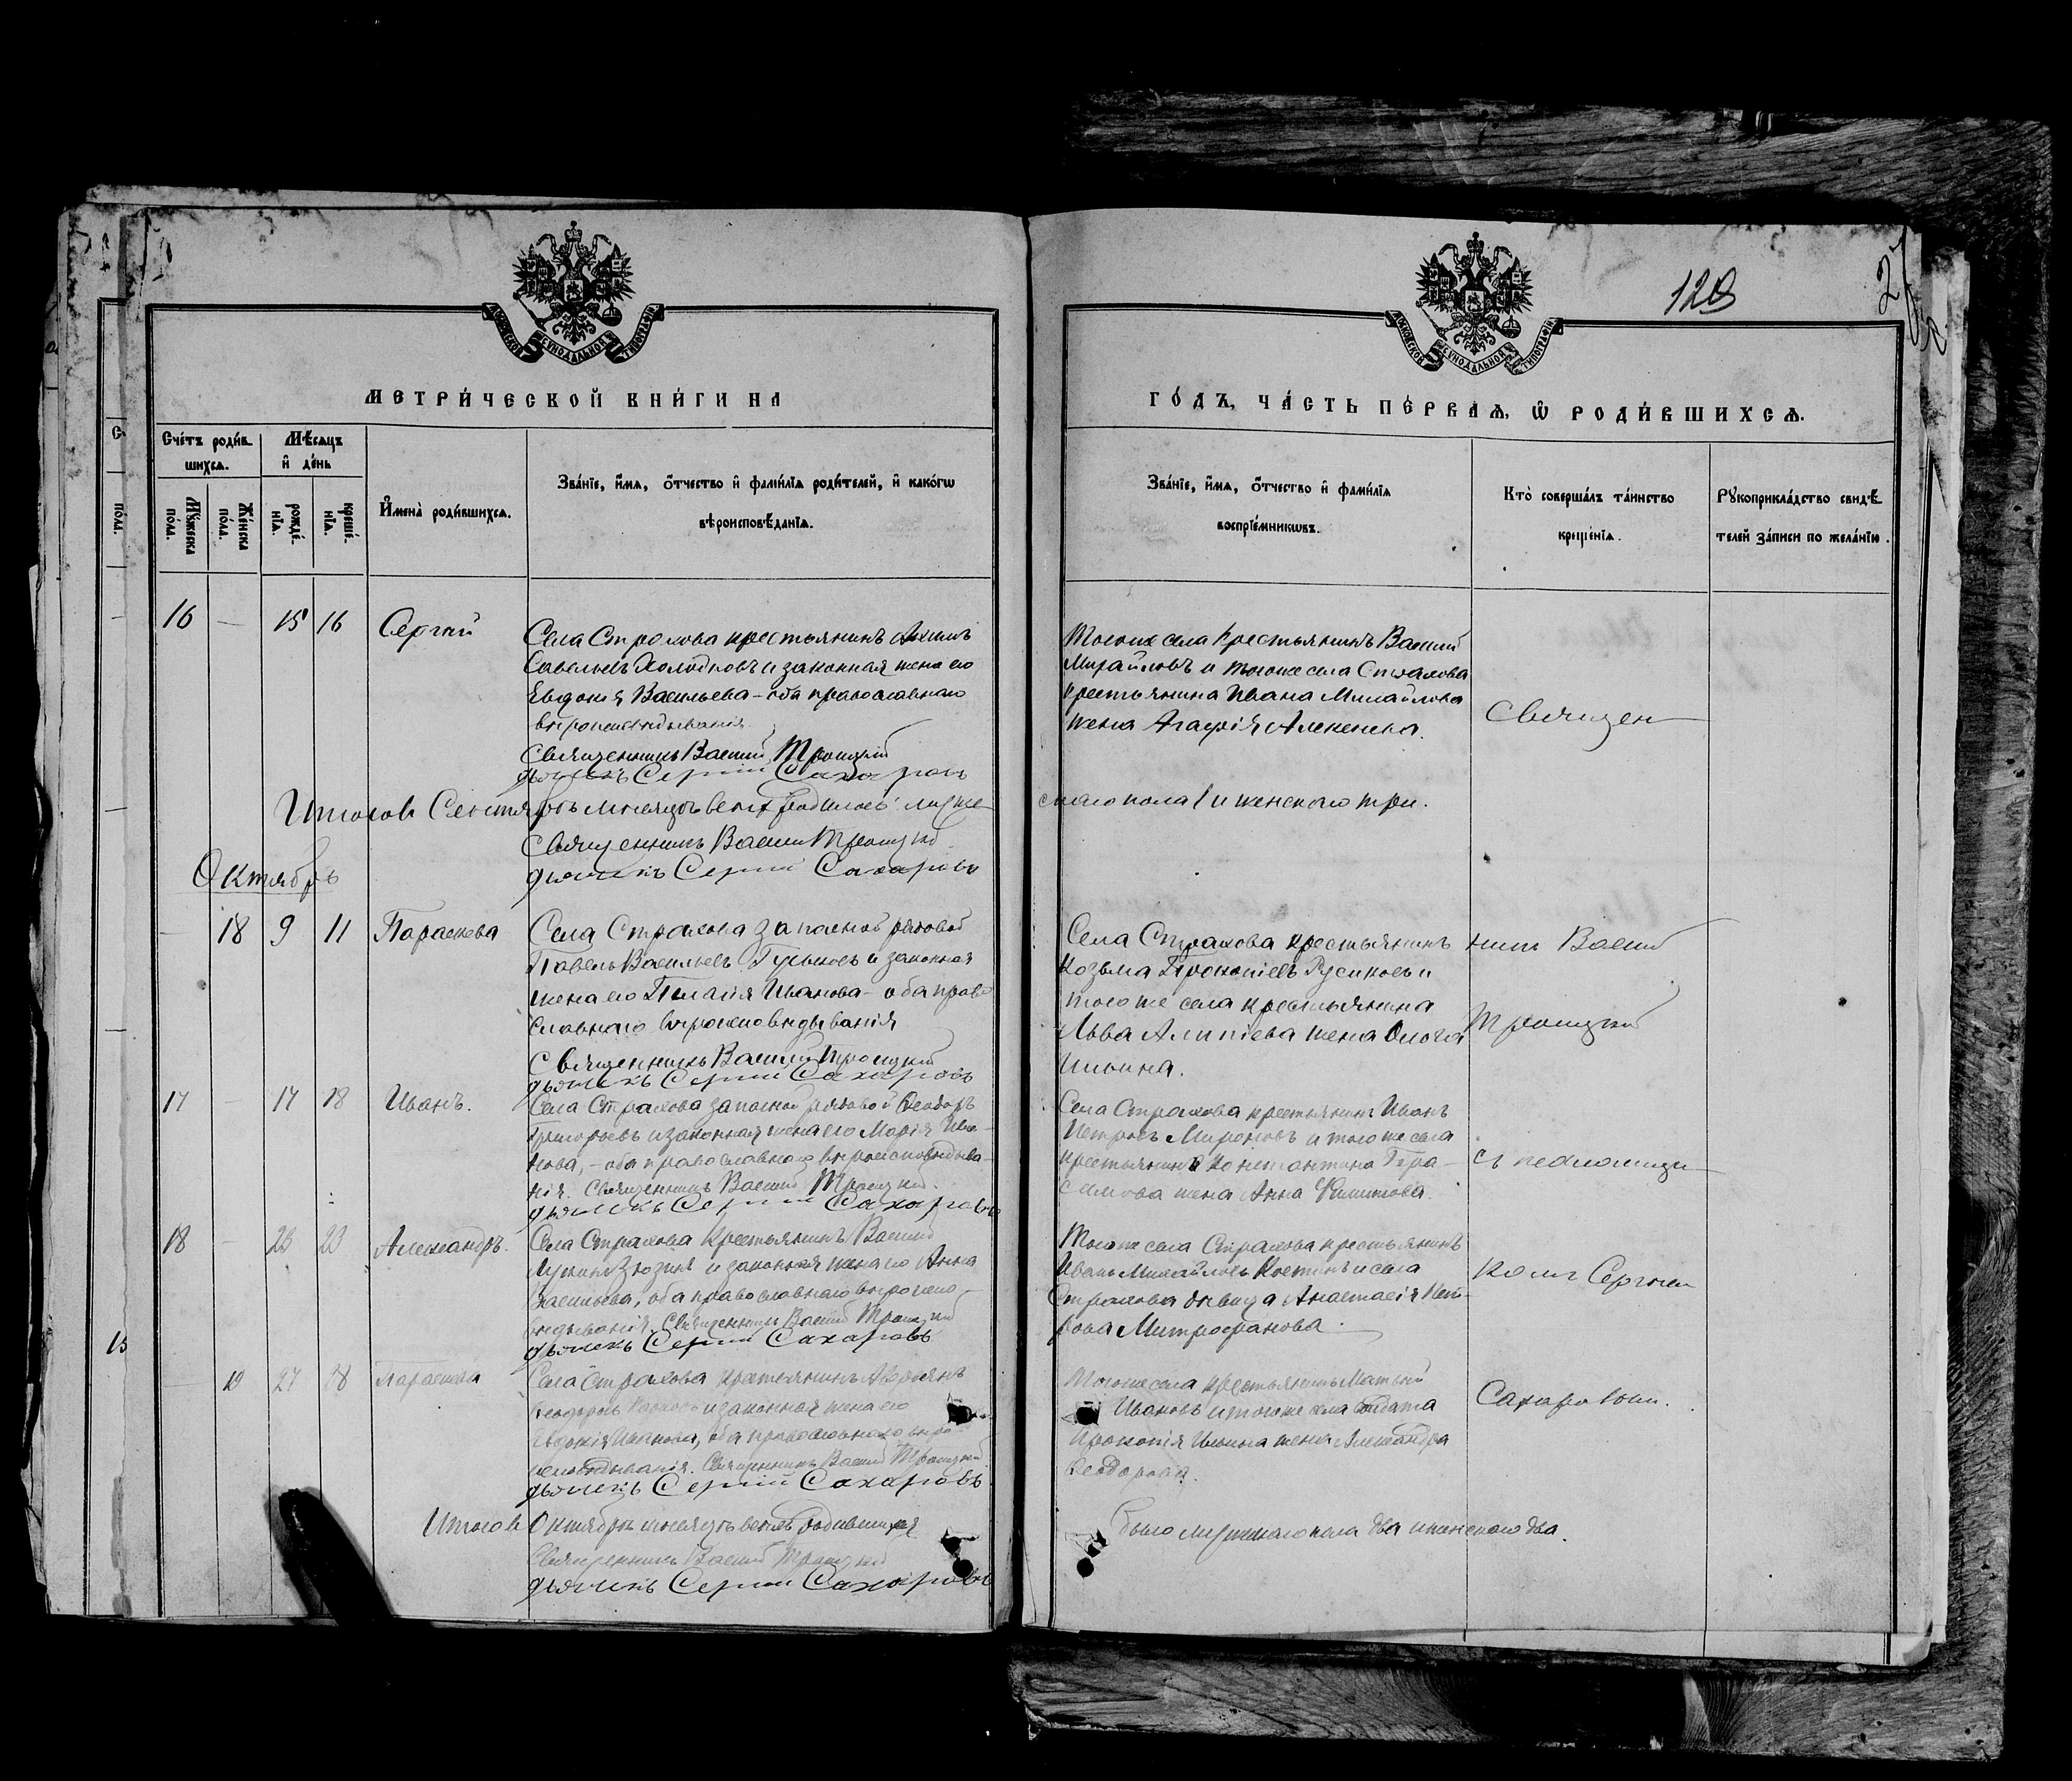 128
МЕТРИ́ЧЕСКОЙ КНИ́ГИ НА
ГО́ДЪ, ЧА́СТЬ ПЕ́РВАѦ, Ѿ РОДИ́ВШИХСѦ.
Сче́тъ роди́в-
шихсѧ.
Мѣ́сѧцъ
и҆ де́нь
Мꙋ́жеска
по́ла.
Же́нска
по́ла.
рожде́-
нїѧ.
креще́-
нїѧ.
И҆мена̀ роди́вшихсѧ.
Зва́нїе, и҆́мѧ, ѻ҆́тчество и҆ фами́лїѧ роди́телей, и҆ како́гѡ
вѣроисповѣ́данїѧ.
Зва́нїе, и҆́мѧ, ѻ҆́тчество и҆ фами́лїѧ
воспрїе́мникѡвъ.
Кто̀ соверша́лъ та́инство
креще́нїѧ.
Рꙋкоприкла́дство свидѣ́-
телей за́писи по жела́нїю.
16 — 15 16 Сергій
Села Страхова крестьянинъ
Савельевъ Холодковъ и законная жена его
Евдокія Васильева – оба православнаго
вѣроисповѣдыванія
Священникъ Василій Троицкій
дьячекъ Сергій Сахаровъ
Того же села крестьянинъ Василій
Михайловъ и того же села Страхова
крестьянина Ивана Михайлова
жена Агафія Алексѣева.
Священ
Итого въ Сентябрѣ мѣсяцѣ всѣхъ родилось муже
скаго пола 1 и женскаго три.
Священникъ Василій Троицкій
дьячекъ Сергій Сахаровъ
Октябрь
— 18 9 11 Параскева
Села Страхова запасной рядовой
Павелъ Васильевъ и законная
жена его Пелагія Иванова – оба право
славнаго вѣроисповѣдыванія
Священникъ Василій Троицкій
дьячекъ Сергій Сахаровъ
Села Страхова крестьянинъ
Козьма Прокопіевъ и
того же села крестьянина
Льва Алипіева жена Ольга
Ильина.
никъ Василій
Троицкій
17 — 17 18 Иванъ.
Села Страхова запасной рядовой Ѳеодоръ
Григорьевъ и законная жена его Марія Ива-
нова, – оба православнаго вѣроисповѣдыва-
нія. Священникъ Василій Троицкій.
дьячекъ Сергій Сахаровъ
Села Страхова крестьянинъ Иванъ
Петровъ Мироновъ и того же села
крестьянина Константина Гера-
симова жена Анна Филипова.
съ псаломщи
18 — 23 23 Александръ.
Села Страхова крестьянинъ Василій
Зюзинъ и законная жена его Анна
Васильева, оба православнаго вѣроиспо
вѣдыванія. Священникъ Василій Троицкій
дьячекъ Сергій Сахаровъ
Того же села Страхова крестьянинъ
Иванъ Михайловъ Костинъ и села
Страхова дѣвица Анастасія Пет-
рова Митрофанова.
комъ Сергіемъ
19 27 28 Параскева
Села Страхова крестьянинъ
Ѳеодоровъ и законная жена его
Евдокія Иванова, оба православнаго вѣро
исповѣдыванія. Священникъ Василій Троицкій
дьячекъ Сергій Сахаровъ
Того же села крестьянинъ Матвѣй
Ивановъ и того же села солдата
Прокопія Ильина жена Александра
Ѳеодорова.
Сахаровымъ.
Итого въ Октябрѣ мѣсяцѣ всѣхъ родившихся
было мужескаго пола два и женскаго два.
Священникъ Василій Троицкій
дьячекъ Сергій Сахаровъ